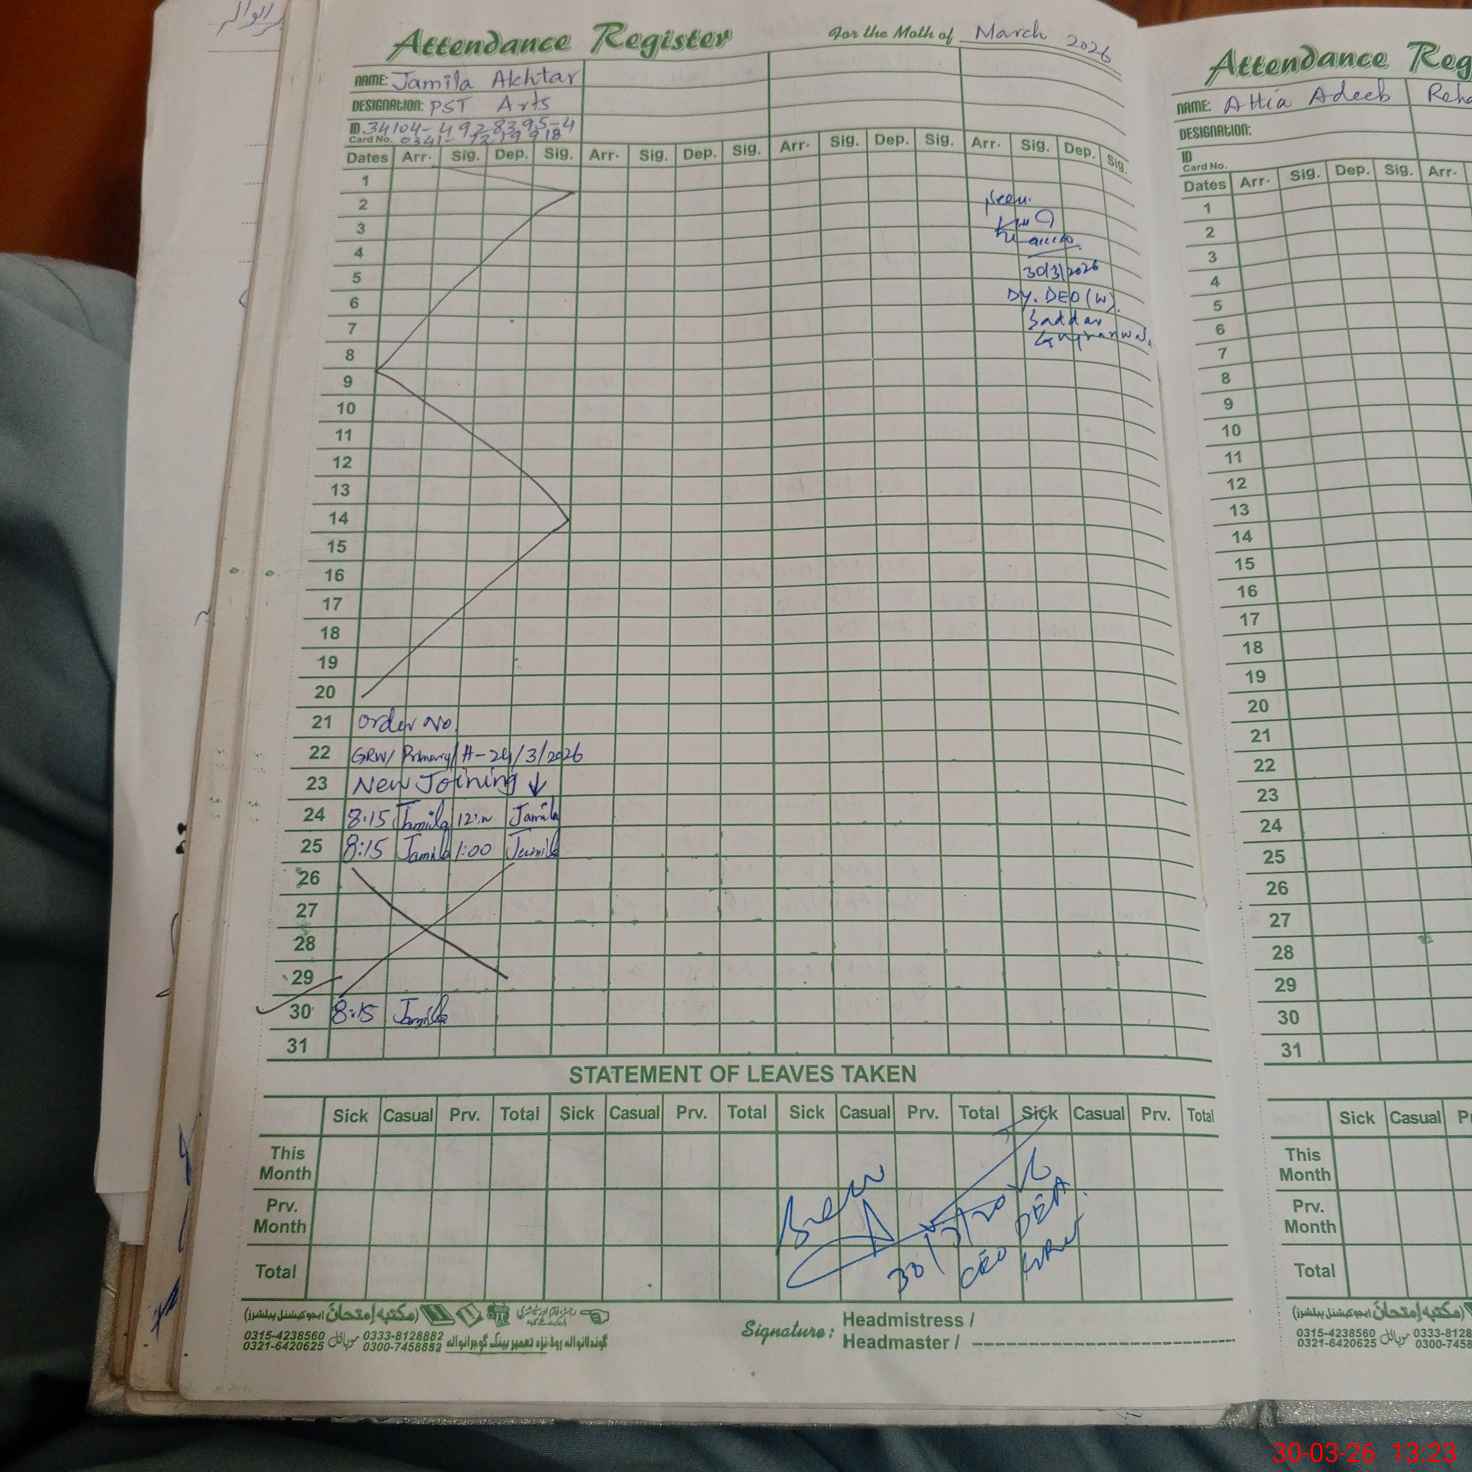 Attendance Register For the Moth of March 2026
NAME: Jamila Akhtar
DESIGNATION: PST Arts
ID 34104-4928395-4
Card No.
Dates Arr. Sig. Dep. Sig. Arr. Sig. Dep. Sig. Arr. Sig. Dep. Sig. Arr. Sig. Dep. Sig.
1
2
3
4
5
6
7
8
9
10
11
12
13
14
15
16
17
18
19
20
21 Order No.
22 GRW/Primary/A-24/3/2026
23 New Joining ↓
24 8:15 Jamila Jamila
25 8:15 Jamila 1:00 Jamila
26
27
28
29
30 8:15 Jamila
31
30/3/2026
Dy. DEO (W)
Saddar
Gujranwala
STATEMENT OF LEAVES TAKEN
Sick Casual Prv. Total Sick Casual Prv. Total Sick Casual Prv. Total Sick Casual Prv. Total
This Month
Prv. Month
Total
30/3/20
CEO DEA
مکتبہ امتحان
0315-4238560 موبائل 0333-8128882
0321-6420625 0300-7458882
Signature: Headmistress /
Headmaster /
Attendance Reg
NAME: Attia Adeeb Reha
DESIGNATION:
ID
Card No.
Dates Arr. Sig. Dep. Sig. Arr.
1
2
3
4
5
6
7
8
9
10
11
12
13
14
15
16
17
18
19
20
21
22
23
24
25
26
27
28
29
30
31
Sick Casual
This Month
Prv. Month
Total
مکتبہ امتحان
0315-4238560 موبائل 0333-8128
0321-6420625 0300-7458
30-03-26 13:23